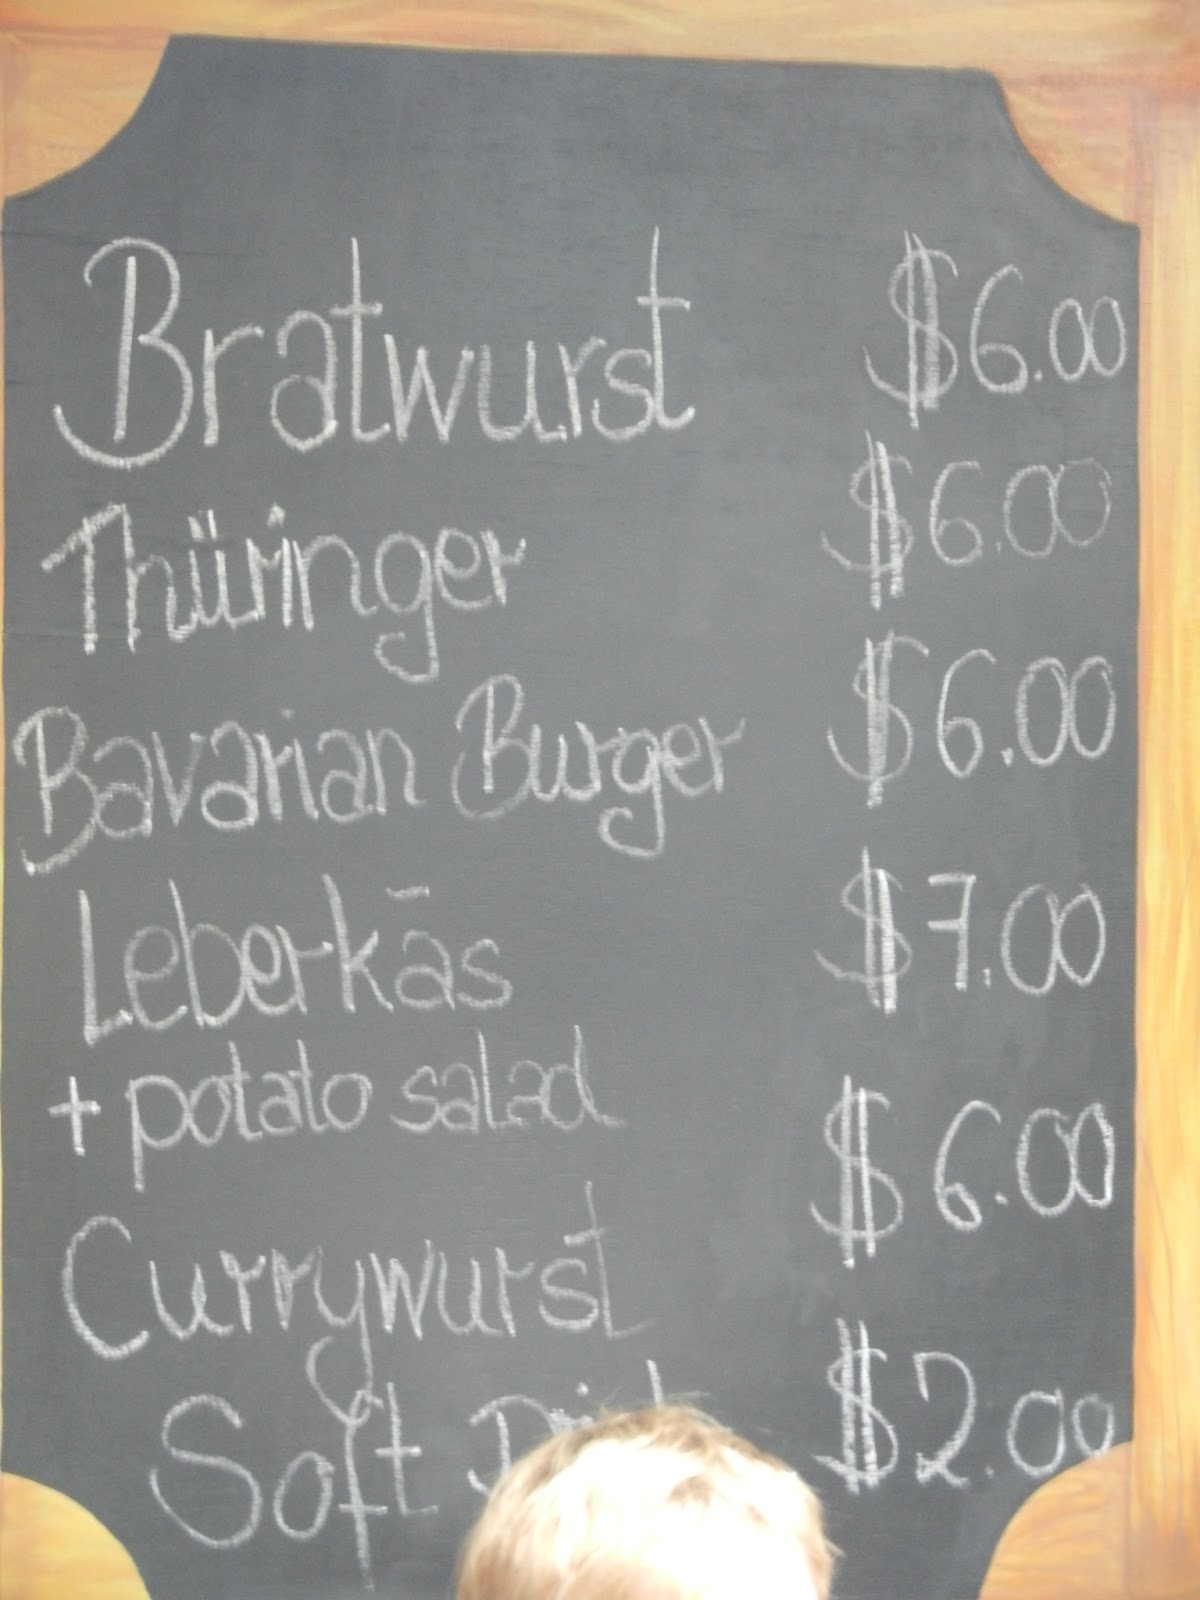 Bratwurst $6.00
Thüringer $6.00
Bavarian Burger $6.00
Leberkäs $7.00
+ potato salad
Currywurst $6.00
Soft $2.00